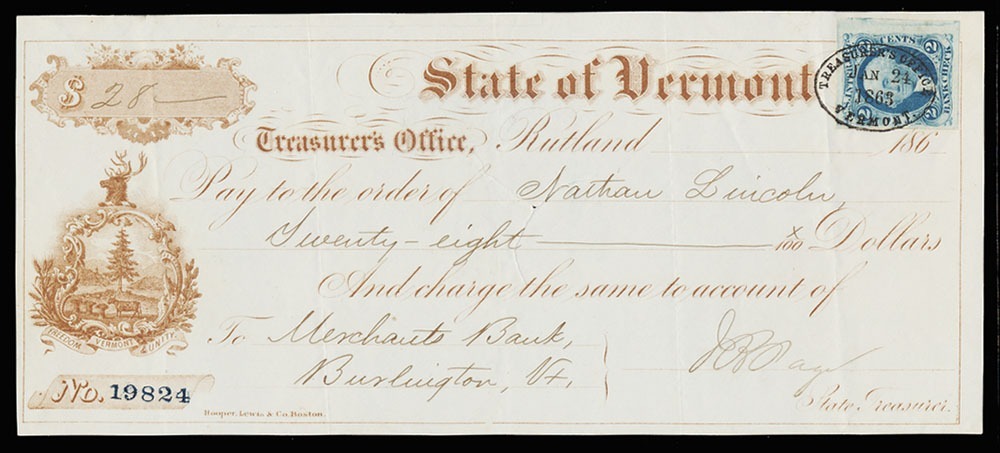 $ 28
State of Vermont
Treasurer's Office, Rutland 186
Pay to the order of Nathan Lincoln
Twenty-eight x/100 Dollars
And charge the same to account of
To Merchants Bank,
Burlington, Vt.
J B Page
State Treasurer.
FREEDOM VERMONT & UNITY
No. 19824
Hooper, Lewis & Co. Boston.
2 CENTS 2
BANK CHECK
TREASURER'S OFFICE
JAN 24
1863
VERMONT.